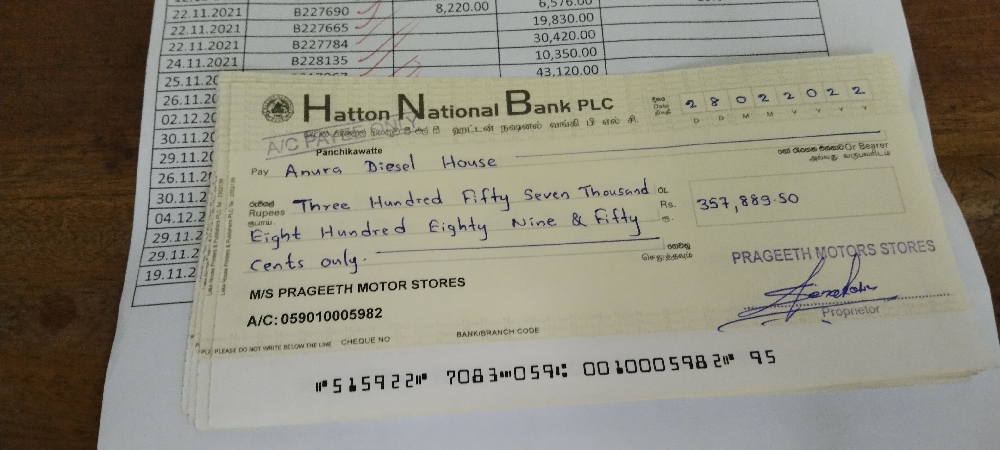 22.11.2021 B227690 8,220.00 6,576.00
22.11.2021 B227665 19,830.00
22.11.2021 B227784 30,420.00
24.11.2021 B228135 10,350.00
25.11.20 43,120.00
26.11.20
02.12.2
30.11.2
29.11.2
26.11.2
30.11.2
04.12.2
29.11.2
29.11.2
19.11.2
Hatton National Bank PLC
ஹட்டன் நஷனல் வங்கி பி எல் சி.
දිනය
Date
திகதி
2 8 0 2 2 0 2 2
D D M M Y Y Y Y
A/C PAYEE ONLY
Panchikawatte
Pay Anura Diesel House
Or Bearer
அல்லது வருபவரிடம்
රුපියල්
Rupees
ரூபாய்
Three Hundred Fifty Seven Thousand
Eight Hundred Eighty Nine & Fifty
Cents only.
රු.
Rs.
ரூ.
357,889.50
ගෙවනු
செலுத்தவும்
M/S PRAGEETH MOTOR STORES
A/C: 059010005982
PRAGEETH MOTORS STORES
Proprietor
PLEASE DO NOT WRITE BELOW THE LINE CHEQUE NO BANK/BRANCH CODE
⑈515922⑈ 7083⑉059⑆ 0010005982⑈ 95